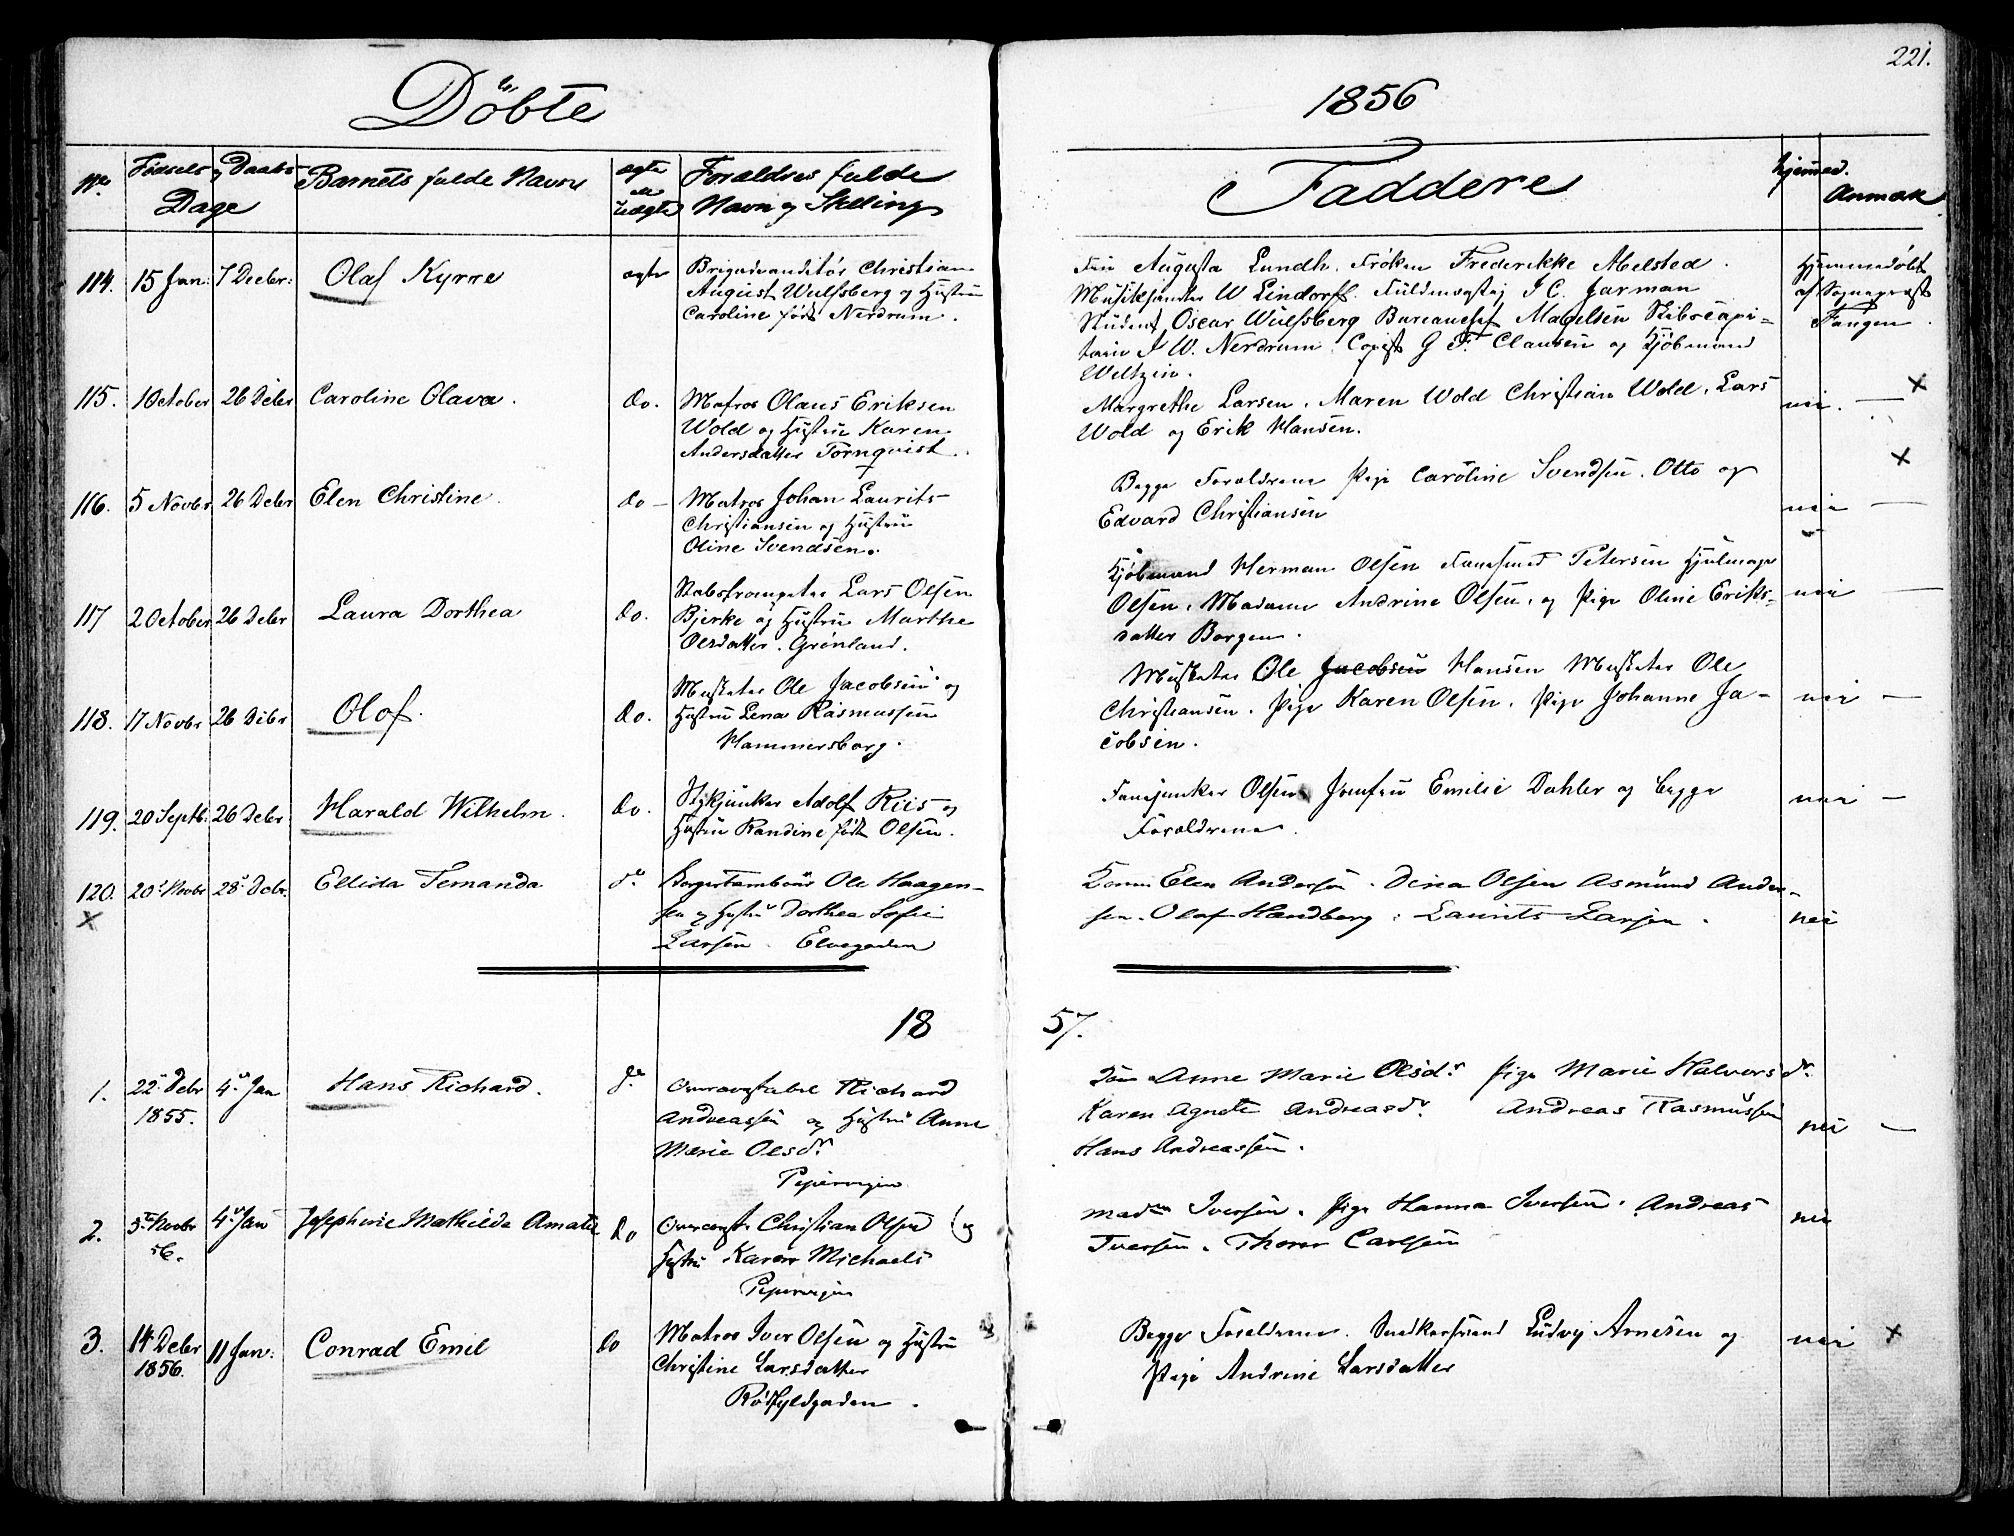 221.
Döbte
1856
No Fødsels og Daabs Barnets fulde Navn ægte Forældres fulde
Dage Uægte Navn og Stilling
Faddere
hjemmed. Anmærk
114. 15 Jan: 7 Decbr: Olaf Kyrre ægte Brigadeauditör Christian
August Wulfsberg og Hustru
Caroline født Nerdrum.
Fru Augusta Lundh. Frøken Frederikke Abelsted.
Musikhandler W Lindorff. Fuldmægtig I C. Jarman
Student Oscar Wulfsberg Bureauchef Magelsen Skibscapi-
tain I W. Nerdrum. Copist G F. Clausen og Kjöbmand
Weltzin.
Hjemmedøbt
af Sognepræst
Fangen.
115. 1 October 26 Decbr Caroline Olava. do. Matros Olaus Eriksen
Wold og Hustru Karen
Andersdatter Tornqvist.
Margrethe Larsen. Maren Wold Christian Wold. Lars
Wold og Erik Hansen.
nei. — x
116. 5 Novbr 26 Decbr Elen Christine. do — Matros Johan Laurits
Christiansen og Hustru
Oline Svendsen.
Begge Forældrene Pige Caroline Svendsen. Otto og
Edvard Christiansen
nei — x
117 2 October 26 Decbr Laura Dorthea do. Stabstrompeter Lars Olsen
Bjerke og Hustru Marthe
Olsdatter. Grønland.
Kjöbmand Herman Olsen Petersen Hjulmager
Olsen. Madame Andrine Olsen. og Pige Oline Eriks-
datter Borgen.
nei —
118. 17 Novbr 26 Decbr Olaf. do. Musketer Ole Jacobsen og
Hustru Lena Rasmussen
Hammersborg.
Musketer Ole Jacobsen Hansen Musketer Ole
Christiansen. Pige Karen Olsen. Pige Johanne Ja-
cobsen.
nei —
119. 20 Septb: 26 Decbr Harald Wilhelm. do. Stykjunker Adolf Riis og
Hustru Randine født Olsen.
Fanejunker Olsen Jomfru Emilie Dahler og begge
Forældrene.
nei —
120. 20 Novbr 28 Decbr. Ellida Fernanda do Borgertambour Ole Haagen-
sen og Hustru Dorthea Sofie
Larsen. Elvegaden
x
Konen Elen Andersen. Dina Olsen Asmund Ander-
sen. Olaf Handberg. Laurits Larsen.
nei
18 57.
1. 22 Debr 4 Jan Hans Richard. do Richard
1855. Andreassen og Hustru Anne
Marie Olsdr
Pipervigen
Anne Marie Olsdr Pige Marie Halvorsdr
Karen Agnete Andreasdr. Andreas Rasmussen
Hans Andreassen.
nei —
2. 3 Novbr 4 Jan Josephine Mathilde Amalie do Christian Olsen og
56. Hustru Karen Michaels
Pipervigen
Madm Iversen. Pige Hanna Iversen. Andreas
Iversen. Thorer Carlsen
nei
3. 14 Debr 11 Jan: Conrad Emil do Matros Iver Olsen og Hustru
1856. Christine Larsdatter
Rödfyldgaden.
Begge Forældrene. Snedkersvend Ludvig Arnesen og
Pige Andrine Larsdatter
nei x